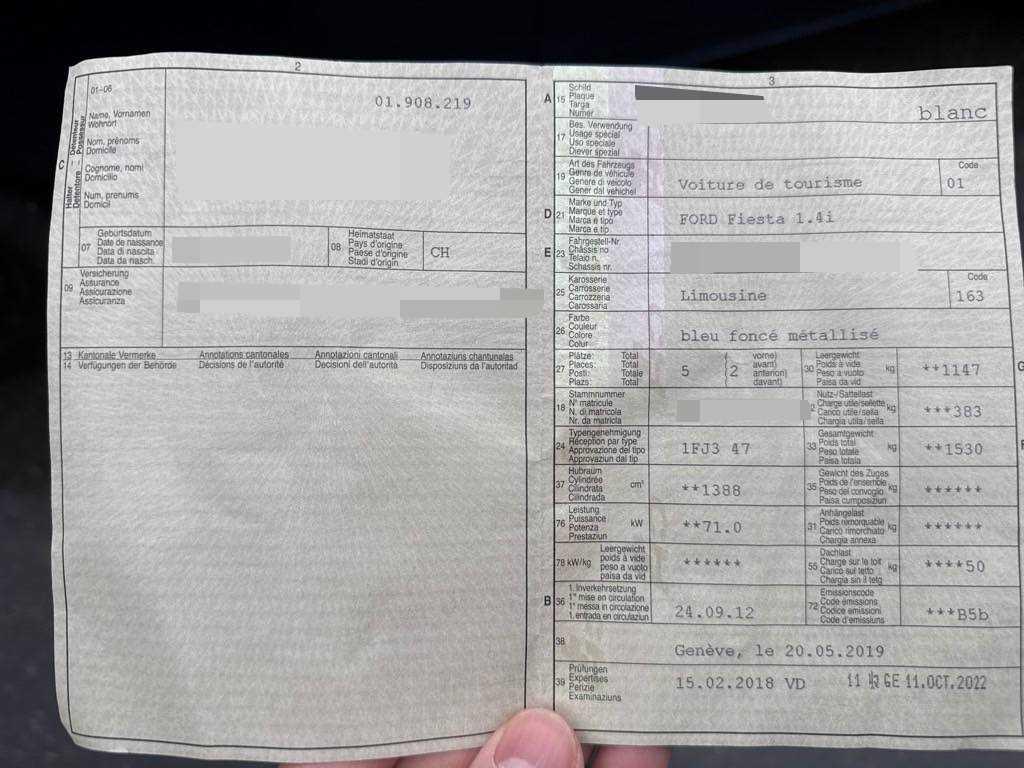 2
01-06
01.908.219
Name, Vornamen
Wohnort
Nom, prénoms
Domicile
Cognome, nomi
Domicilio
Num, prenums
Domicil
C
Halter
Détenteur
Detentore
Possessur
07
Geburtsdatum
Date de naissance
Data di nascita
Data da nasch.
08
Heimatstaat
Pays d'origine
Paese d'origine
Stadi d'origin
CH
09
Versicherung
Assurance
Assicurazione
Assicuranza
13 Kantonale Vermerke Annotations cantonales Annotazioni cantonali Annotaziuns chantunalas
14 Verfügungen der Behörde Décisions de l'autorité Decisioni dell'autorità Disposiziuns da l'autoritad
3
A 15
Schild
Plaque
Targa
Numer
blanc
17
Bes. Verwendung
Usage spécial
Uso speciale
Diever spezial
19
Art des Fahrzeugs
Genre de véhicule
Genere di veicolo
Gener dal vehichel
Voiture de tourisme
Code
01
D 21
Marke und Typ
Marque et type
Marca e tipo
Marca e tip
FORD Fiesta 1.4i
E 23
Fahrgestell-Nr.
Châssis no
Telaio n.
Schassis nr.
25
Karosserie
Carrosserie
Carrozzeria
Carossaria
Limousine
Code
163
26
Farbe
Couleur
Colore
Colur
bleu foncé métallisé
27
Plätze: Total
Places: Total
Posti: Totale
Plazs: Total
5
2
vorne)
avant)
anteriori)
davant)
30
Leergewicht
Poids à vide
Peso a vuoto
Paisa da vid
kg
**1147
G
18
Stammnummer
N° matricule
N. di matricola
Nr. da matricla
Nutz-/Sattellast
Charge utile/sellette
Carico utile/sella
Chargia utila/sella
kg
***383
24
Typengenehmigung
Réception par type
Approvazione del tipo
Approvaziun dal tip
1FJ3 47
33
Gesamtgewicht
Poids total
Peso totale
Paisa totala
kg
**1530
37
Hubraum
Cylindrée
Cilindrata
Cilindrada
cm³
**1388
35
Gewicht des Zuges
Poids de l'ensemble
Peso del convoglio
Paisa cumposiziun
kg
******
76
Leistung
Puissance
Potenza
Prestaziun
kW
**71.0
31
Anhängelast
Poids remorquable
Carico rimorchiato
Chargia annexa
kg
******
78 kW/kg
Leergewicht
poids à vide
peso a vuoto
paisa da vid
******
55
Dachlast
Charge sur le toit
Carico sul tetto
Chargia sin il tetg
kg
****50
B 36
1. Inverkehrsetzung
1re mise en circulation
1a messa in circolazione
1. entrada en circulaziun
24.09.12
72
Emissionscode
Code émissions
Codice emissioni
Code d'emissiuns
***B5b
38
Genève, le 20.05.2019
39
Prüfungen
Expertises
Perizie
Examinaziuns
15.02.2018 VD
GE 11.OCT.2022